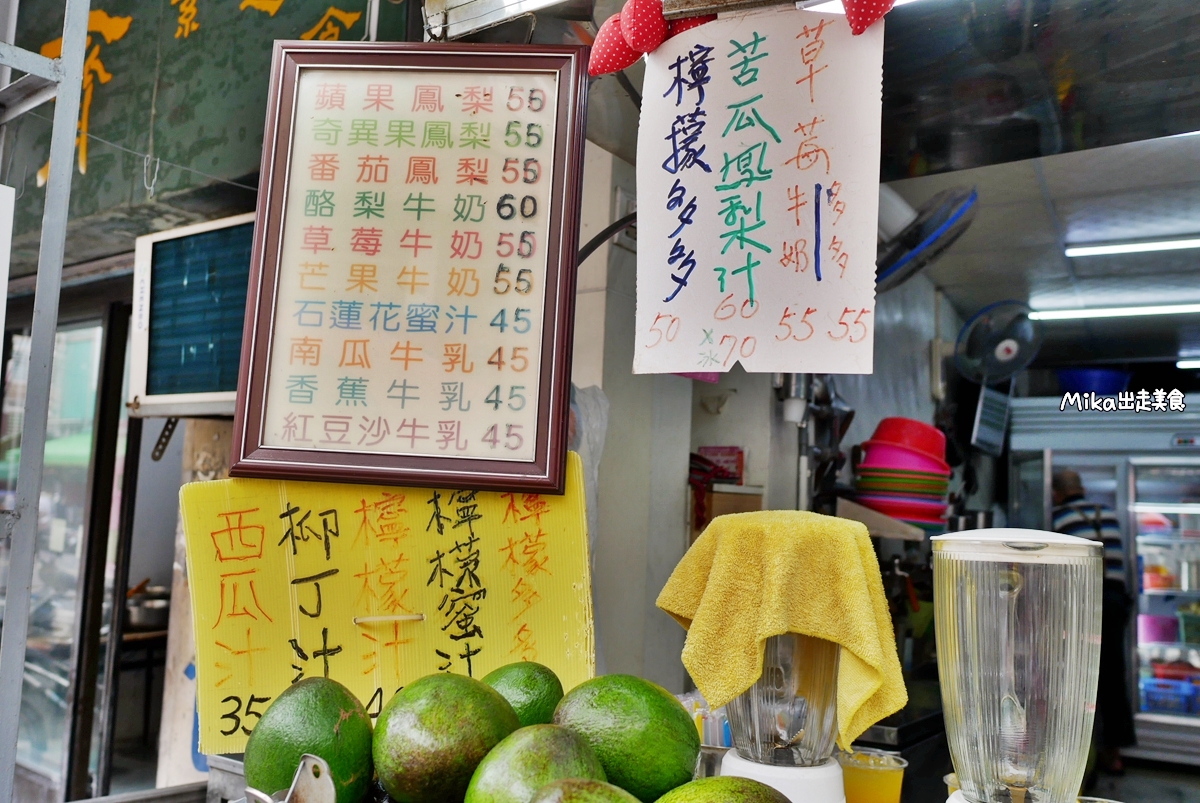 素食
蘋果鳳梨 55
奇異果鳳梨 55
番茄鳳梨 55
酪梨牛奶 60
草莓牛奶 55
芒果牛奶 55
石蓮花蜜汁 45
南瓜牛乳 45
香蕉牛乳 45
紅豆沙牛乳 45
草莓牛奶 55
多多 55
苦瓜鳳梨汁 60
冰 70
檸檬多多 50
西瓜汁 35
柳丁汁
檸檬汁
檸檬蜜汁
檸檬多多
Mika出走美食